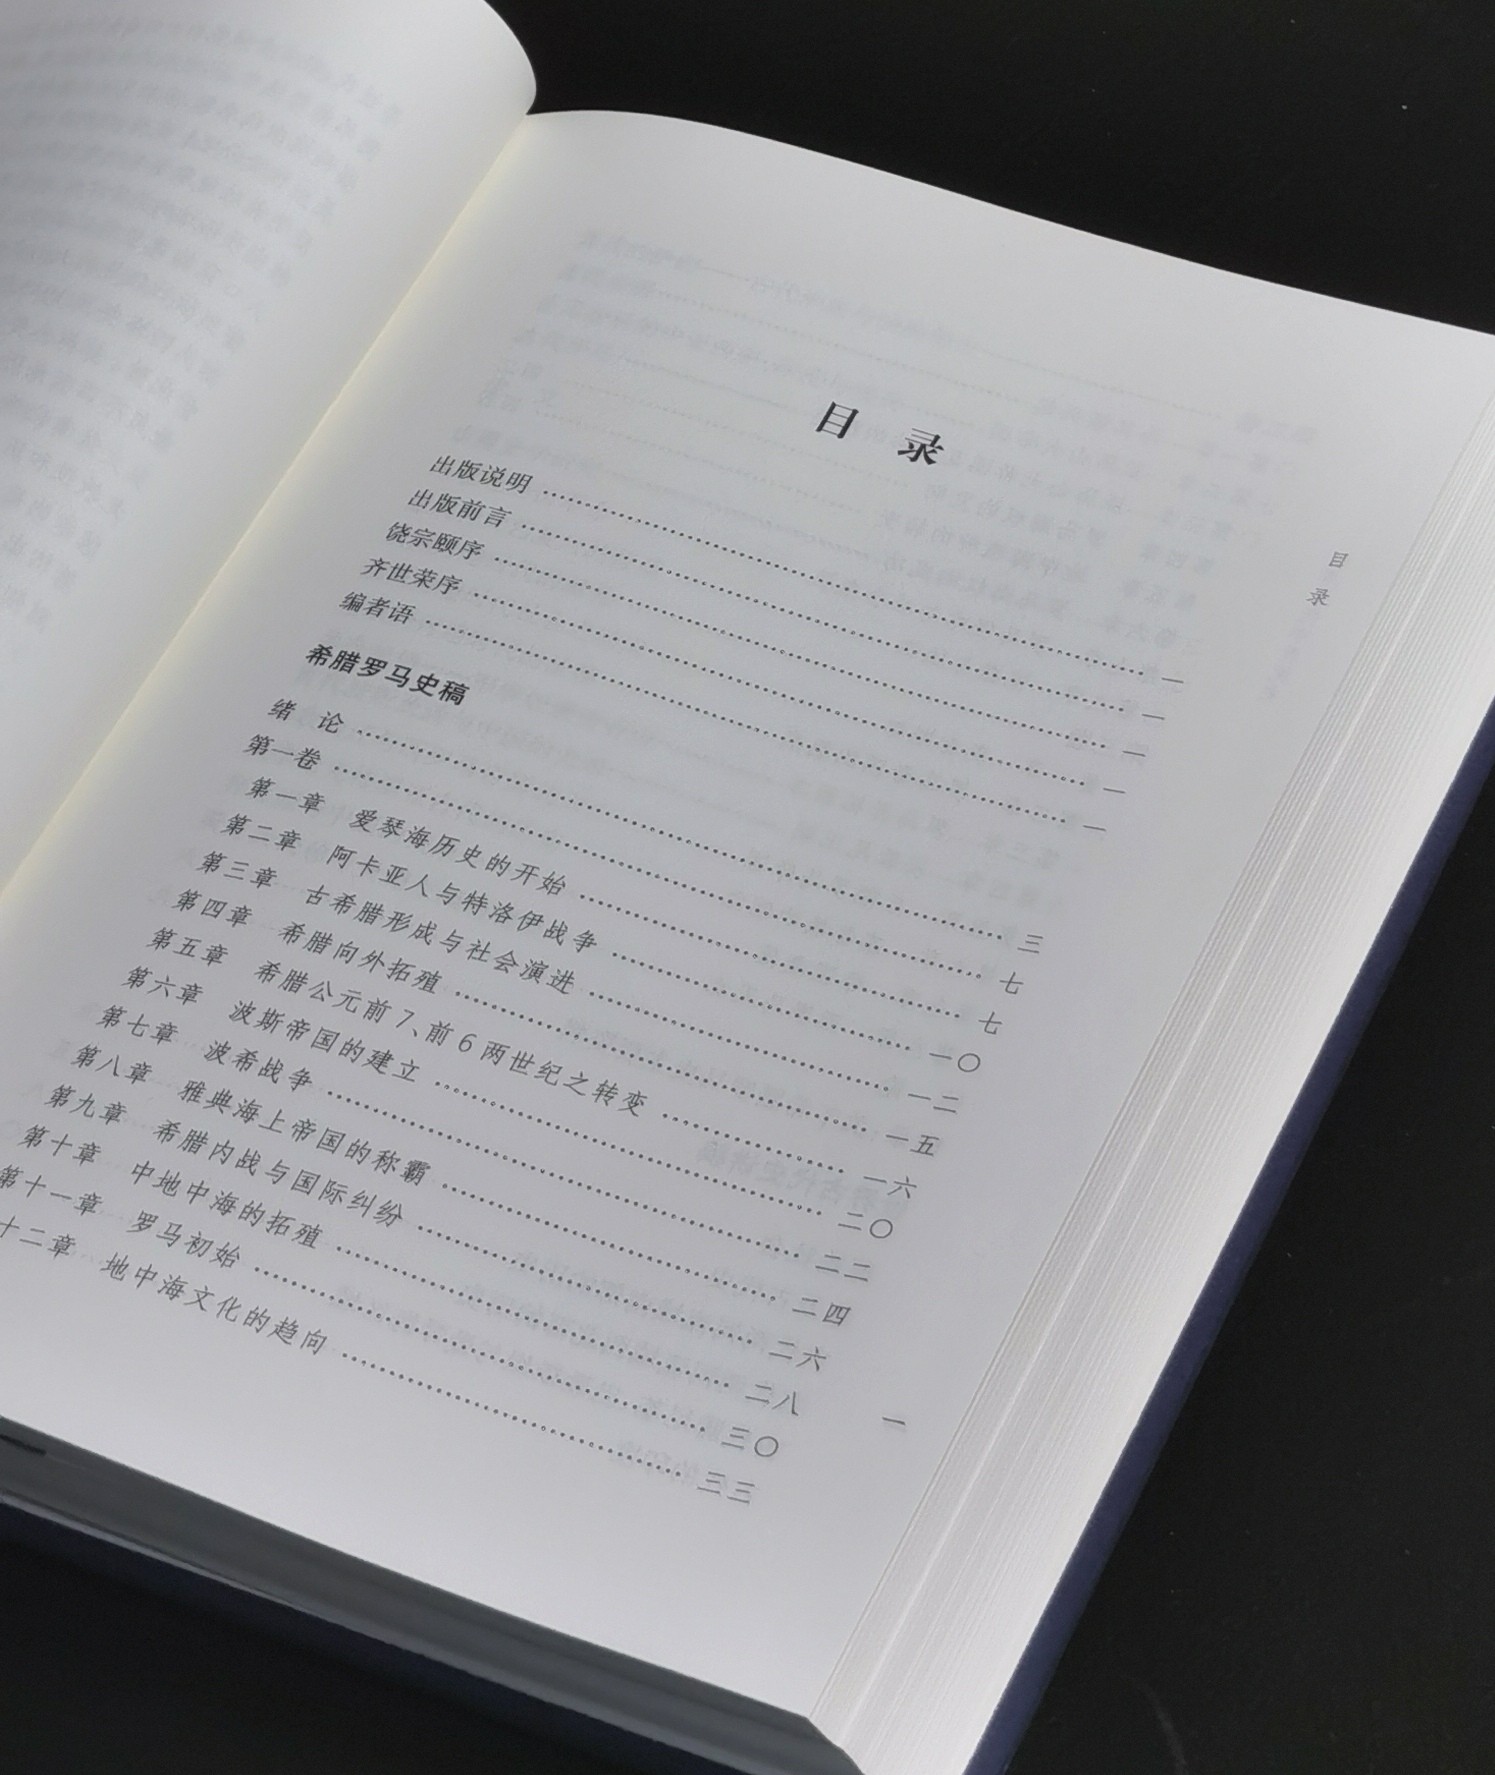 目 录
出版说明 …… 一
出版前言 …… 一
饶宗颐序 …… 一
齐世荣序 …… 一
编者语 …… 一
希腊罗马史稿
绪 论 …… 三
第一卷 …… 七
第一章 爱琴海历史的开始 …… 七
第二章 阿卡亚人与特洛伊战争 …… 一〇
第三章 古希腊形成与社会演进 …… 一二
第四章 希腊向外拓殖 …… 一五
第五章 希腊公元前7、前6两世纪之转变 …… 一六
第六章 波斯帝国的建立 …… 二〇
第七章 波希战争 …… 二二
第八章 雅典海上帝国的称霸 …… 二四
第九章 希腊内战与国际纠纷 …… 二六
第十章 中地中海的拓殖 …… 二八
第十一章 罗马初始 …… 三〇
十二章 地中海文化的趋向 …… 三三
目 录
一